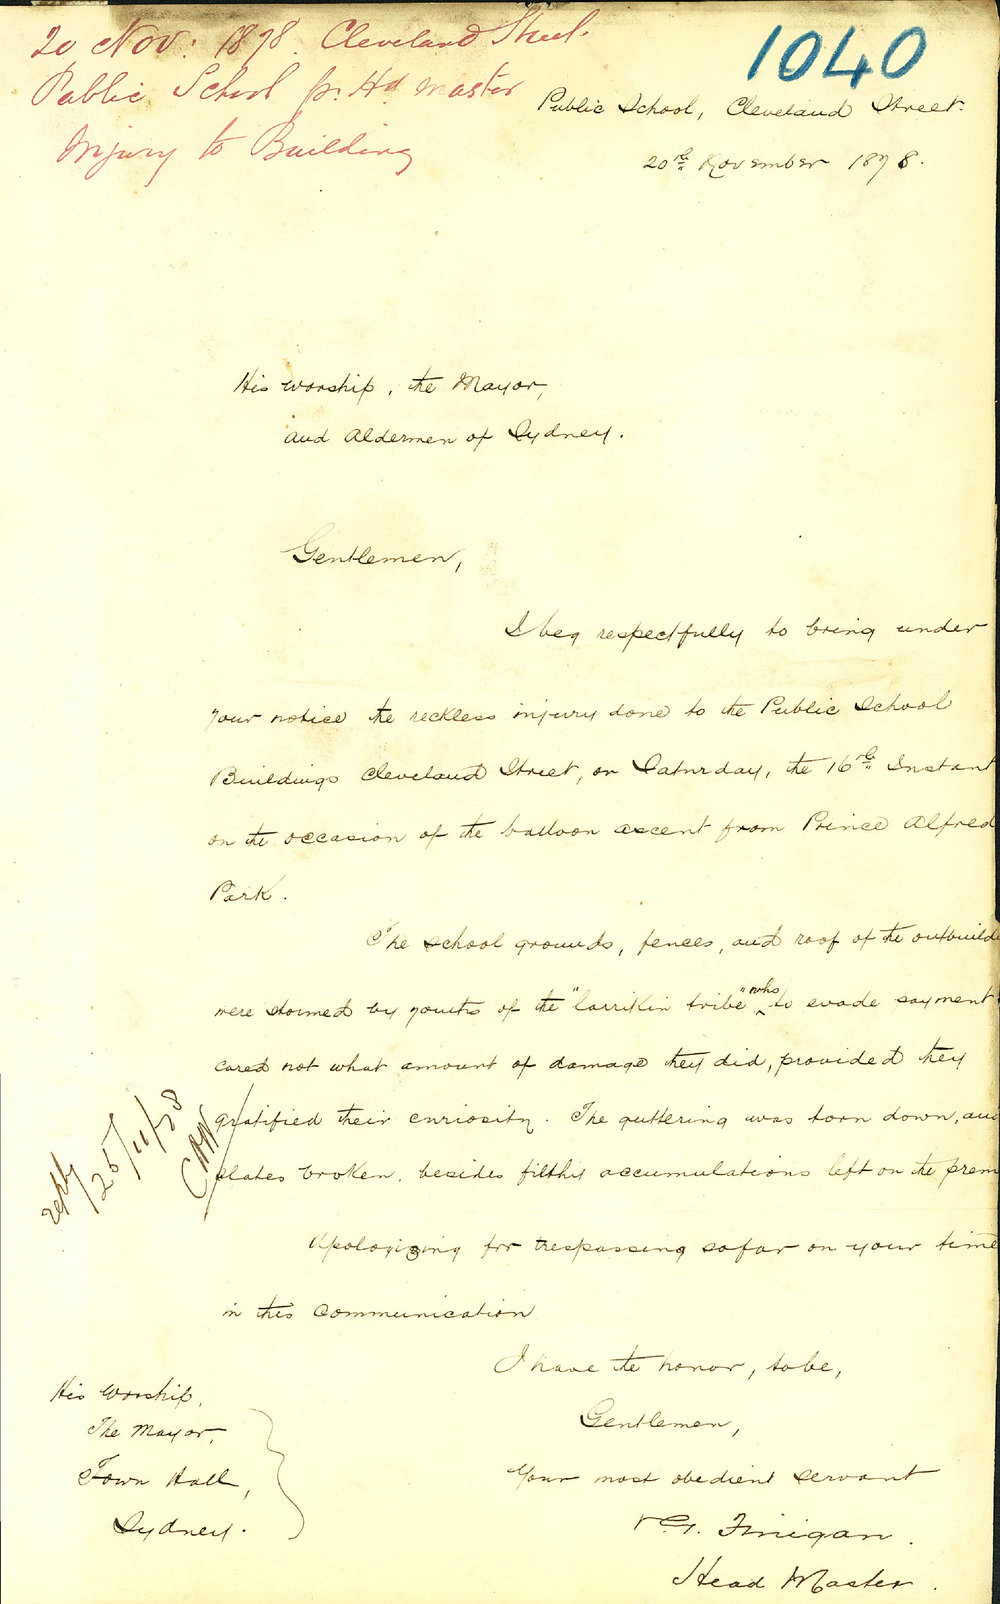 20 Nov: 1878. Cleveland Street
Public School pr. Hd master
Injury to Building
1040
Public School, Cleveland Street.
20th November 1878.
His Worship, the Mayor,
and Aldermen of Sydney.
Gentlemen,
I beg respectfully to bring under
your notice the reckless injury done to the Public School
Buildings Cleveland Street, on Saturday, the 16th Instant
on the occasion of the balloon ascent from Prince Alfred
Park.
The school grounds, fences, and roof of the outbuild
were stormed by youths of the "larrikin tribe" who to evade payment
cared not what amount of damage they did, provided they
gratified their curiosity. The guttering was torn down, and
slates broken, besides filthy accumulations left on the prem
Apologizing for trespassing so far on your time
in this communication
I have the honor, to be,
Gentlemen,
Your most obedient servant
Finigan.
Head Master.
reply
25/11/78
His Worship,
The Mayor,
Town Hall,
Sydney.